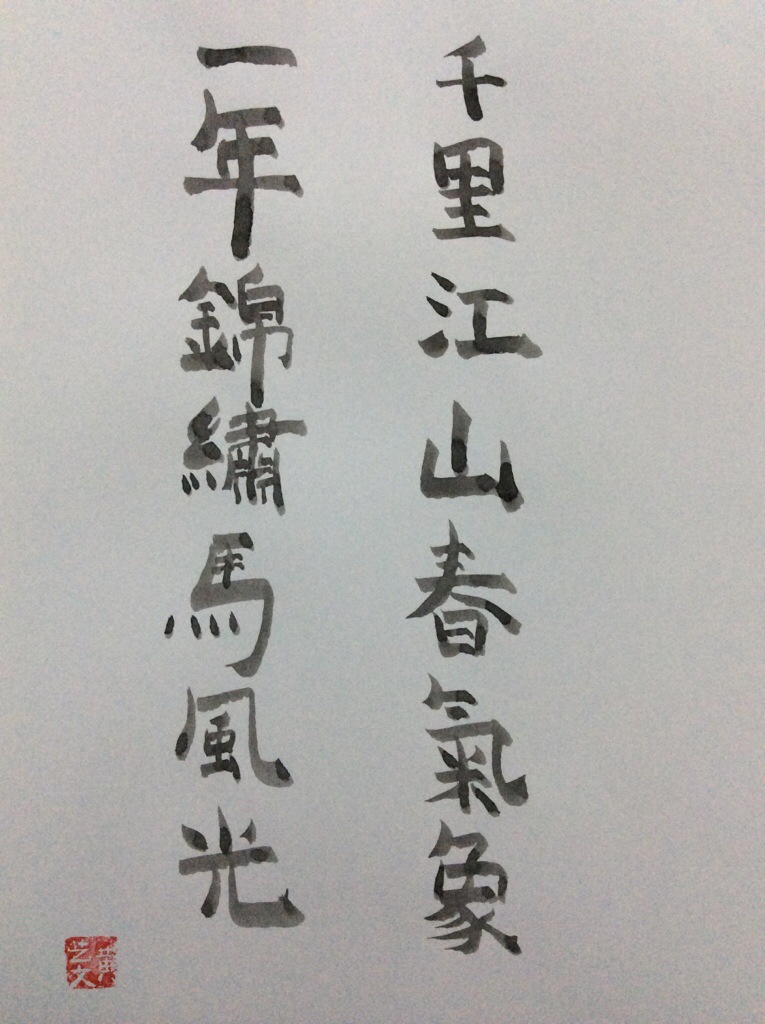 千里江山春氣象
一年錦繡馬風光